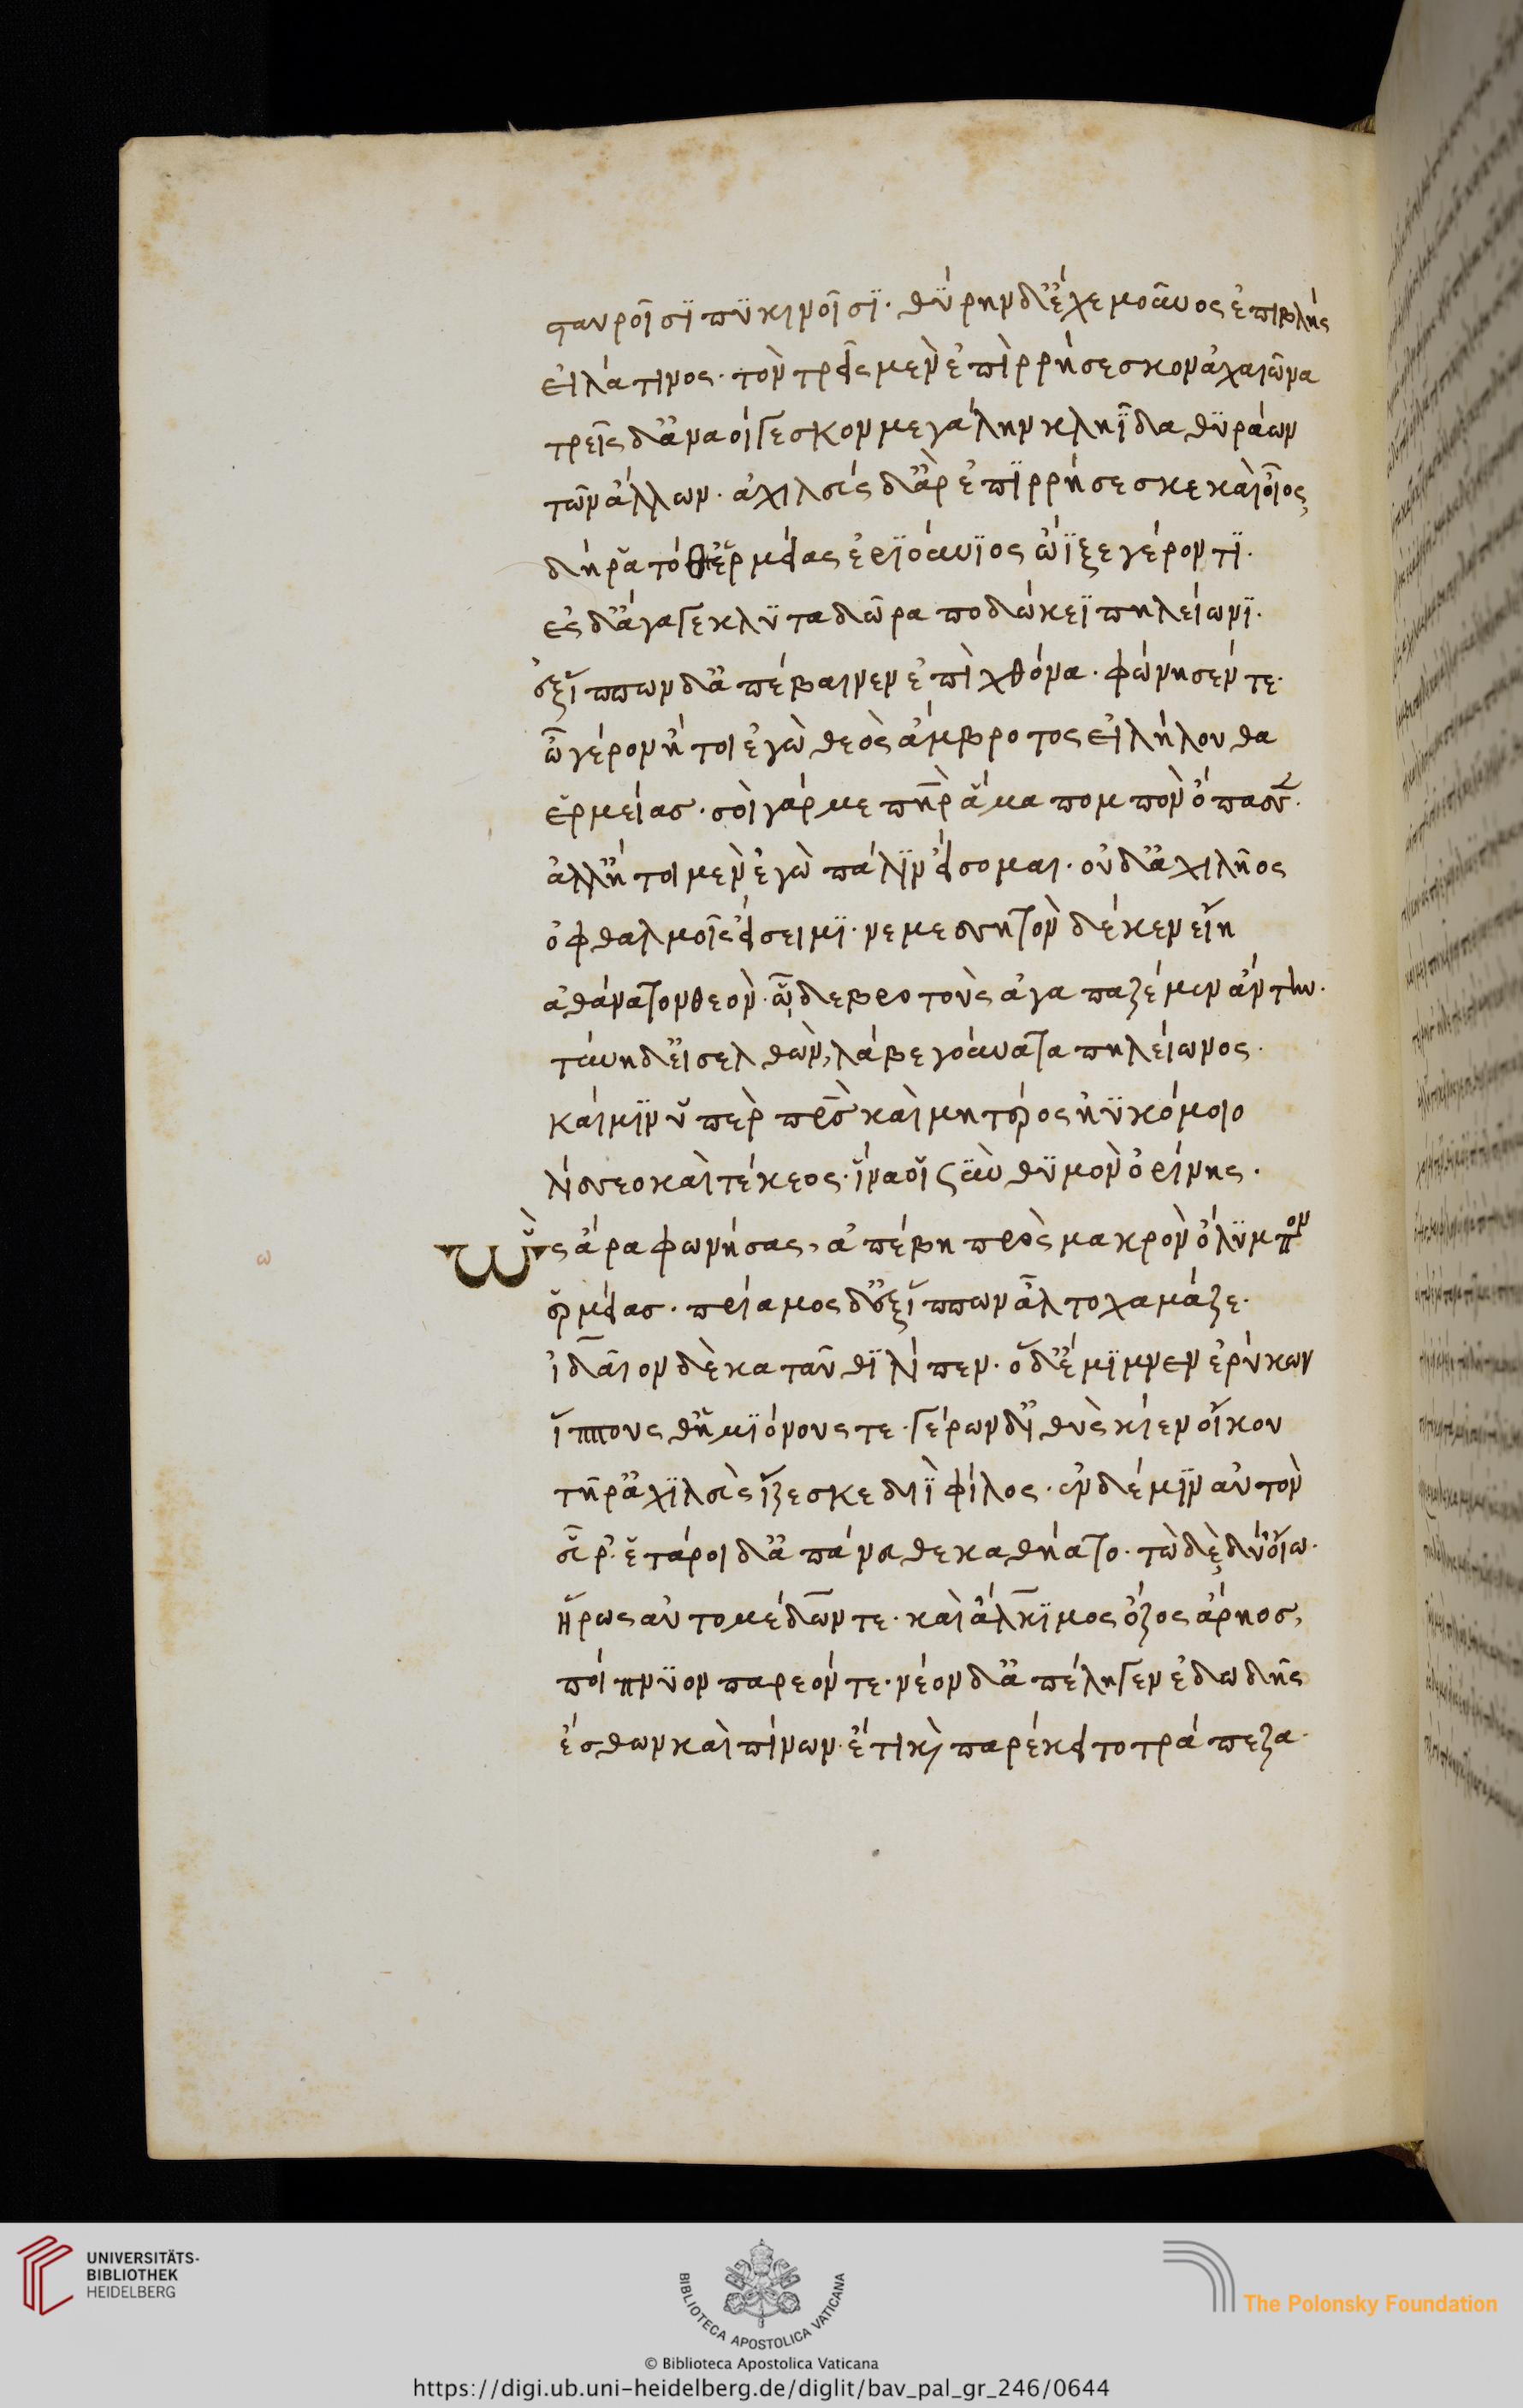 σταυροῖσϊ πϋκινοῖσϊ· θϋρην δ' ἔχε μοῦνος ἐπιβλής
εἰλάτινος· τὸν τρεῖς μὲν ἐπιρρήσεσκον ἀχαιῶν
τρεῖς δ' ἀναοίγεσκον μεγάλην κληῗδα θϋράων
τῶν ἄλλων· ἀχιλεὺς δ' ἂρ ἐπϊρρήσεσκε καὶ οἶος
δή ῥα τόθ' ἑρμείας ἐριούνϊος ᾤϊξε γέροντϊ·
ἐς δ' ἄγαγε κλϋτὰ δῶρα ποδώκεϊ πηλείωνϊ·
ἐξ ἵππων δ' ἀπέβαινεν ἐπὶ χθόνα· φώνησέν τε·
ὦ γέρον ἤτοι ἐγὼ θεὸς ἄμβροτος εἰλήλουθα
ἑρμείας· σοὶ γάρ με πῆρ ἅμα πομπὸν ὄπασσεν·
ἀλλ' ἤτοι μὲν ἐγὼ πάλϊν εἴσομαι· οὐδ' ἀχιλῆος
ὀφθαλμοῖς εἴσειμϊ· νεμεσσητὸν δέ κεν εἴη
ἀθάνατον θεὸν ὧδε βροτοὺς ἀγαπαζέμεν ἄντην·
τύνη δ' εἰσελθὼν, λάβε γούνατα πηλείωνος·
καί μϊν ὑπὲρ πρσ καὶ μητέρος ἠϋκόμοιο
λίσσεο καὶ τέκεος· ἵνα οἵ σὺν θϋμὸν ὀρίνης·
Ὣς ἄρα φωνήσας, ἀπέβη πρὸς μακρὸν ὄλϋμπον
ἑρμείας· πρίαμος δ' ἐξ ἵππων ἆλτο χαμάζε·
ἰδαῖον δὲ κατ' αὖθϊ λίπεν· ὃ δ' ἔμϊμνεν ἐρύκων
ἵππους θ' ἡμϊόνους τε· γέρων δ' ἰθὺς κίεν οἴκου
τῆ ῥ' ἀχϊλεὺς ἵζεσκε διῒ φίλος· ἐν δέ μϊν αὐτὸν
εὗρ'· ἕταροι δ' ἀπάνευθε καθήατο· τὼ δὲ δύ' οἴω·
ἥρως αὐτομέδων τε· καὶ ἄλκϊμος ὄζος ἄρηος,
ποίπνϋον παρεόντε· νέον δ' ἀπέληγεν ἐδωδῆς
ἔσθων καὶ πίνων· ἔτι καὶ παρέκειτο τράπεζα·
ω
UNIVERSITÄTS-
BIBLIOTHEK
HEIDELBERG
BIBLIOTECA APOSTOLICA VATICANA
The Polonsky Foundation
© Biblioteca Apostolica Vaticana
https://digi.ub.uni-heidelberg.de/diglit/bav_pal_gr_246/0644